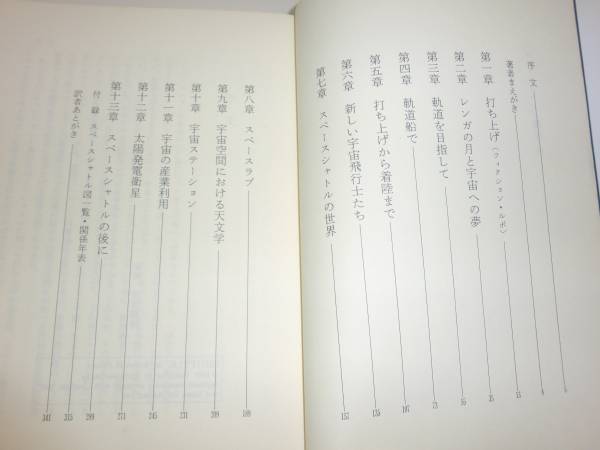 序 文
著者まえがき
第一章 打ち上げ〈フィクション・ルポ〉
第二章 レンガの月と宇宙への夢
第三章 軌道を目指して
第四章 軌道船で
第五章 打ち上げから着陸まで
第六章 新しい宇宙飛行士たち
第七章 スペースシャトルの世界
第八章 スペースラブ
第九章 宇宙空間における天文学
第十章 宇宙ステーション
第十一章 宇宙の産業利用
第十二章 太陽発電衛星
第十三章 スペースシャトルの後に
付 録 スペースシャトル図一覧・関係年表
訳者あとがき